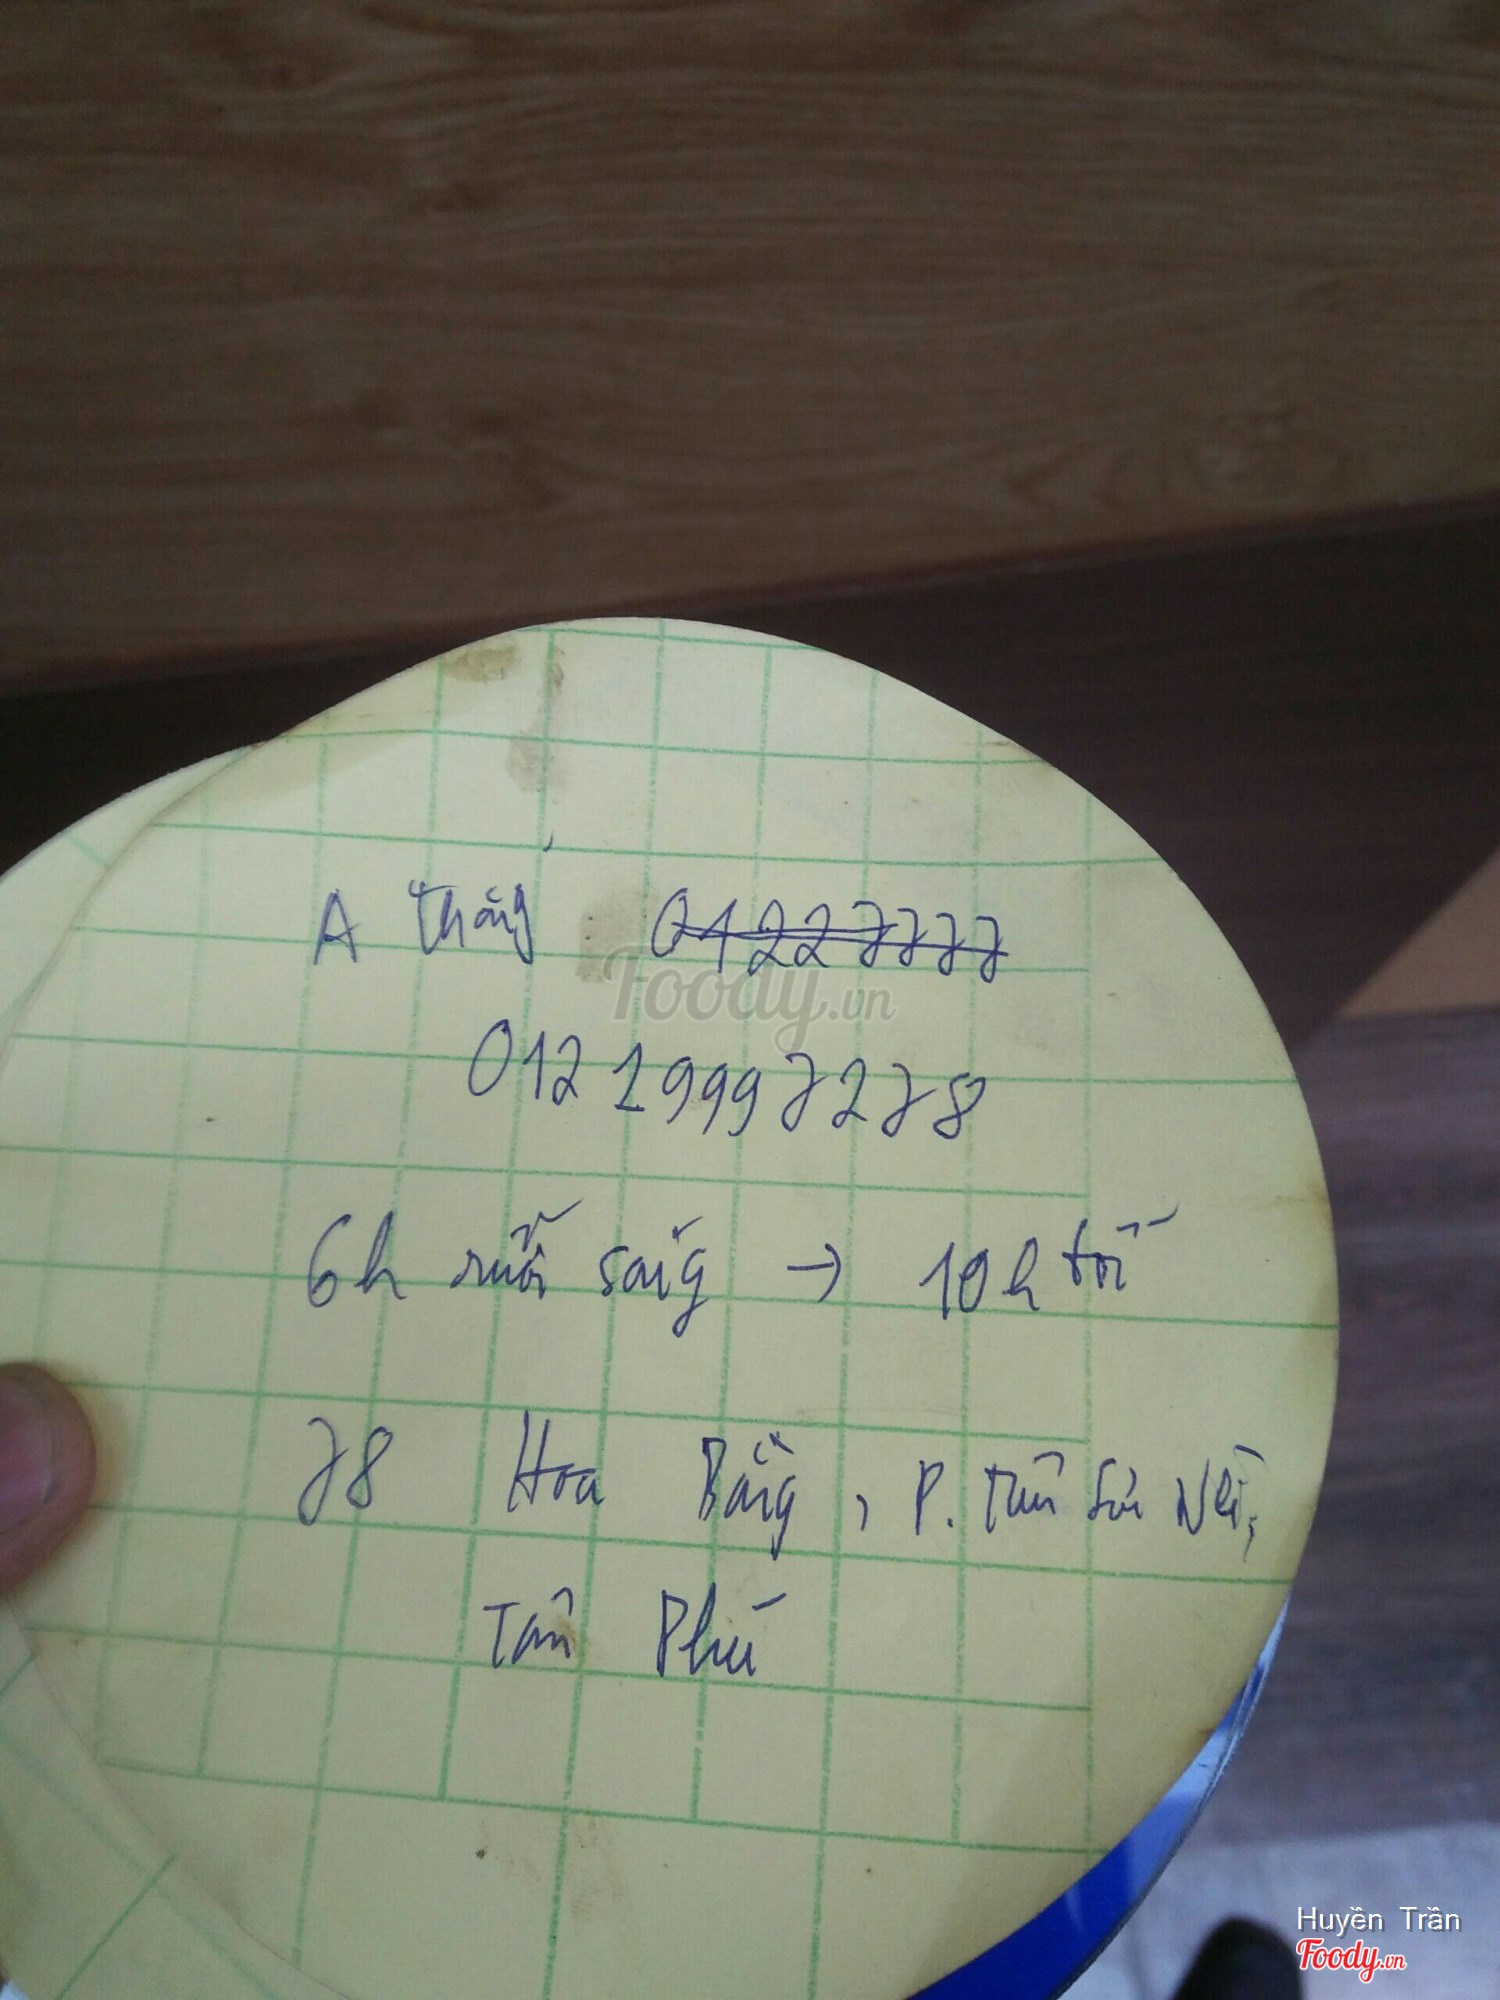 A Thắng 01227777
01219997278
6h rưỡi sáng → 10h tối
78 Hoa Bằng, P. Tân Sơn Nhì,
Tân Phú
Foody.vn
Huyền Trần
Foody.vn